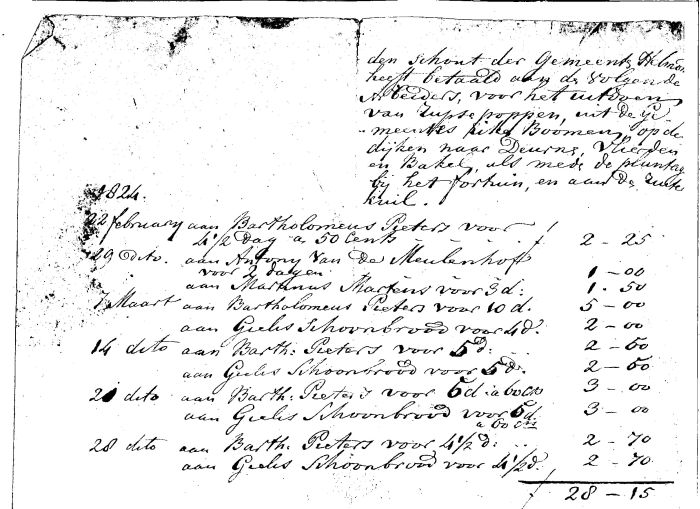 den Schout der Gemeente Helmond
heeft betaald aan de volgende
Arbeiders, voor het uitdoen
van rupse poppen, uit de Ge-
meentes Eike Boomen, op de
dijken naar Deurne, Vlierden
en Bakel, als mede de plantag
bij het fortuin, en aan de
kuil.
1824.
22 february aan Bartholomeus Pieters voor
4 1/2 dag a 50 Cents f 2 - 25
29 dito aan Antony Van de Meulenhof
voor 2 dagen 1 - 00
aan Martinus Martens voor 3 d: 1 - 50
7 Maart aan Bartholomeus Pieters voor 10 d. 5 - 00
aan Gielis Schoonbrood voor 4 d: 2 - 00
14 dito aan Barth: Pieters voor 5 d: .. 2 - 50
aan Gielis Schoonbrood voor 5 d. 2 - 50
21 dito aan Barth: Pieters voor 5 d: a 60 Cts 3 - 00
aan Gielis Schoonbrood voor 5 d.
a 60 Cts 3 - 00
28 dito aan Barth: Pieters voor 4 1/2 d: .. 2 - 70
aan Gielis Schoonbrood voor 4 1/2 d. 2 - 70
f 28 - 15